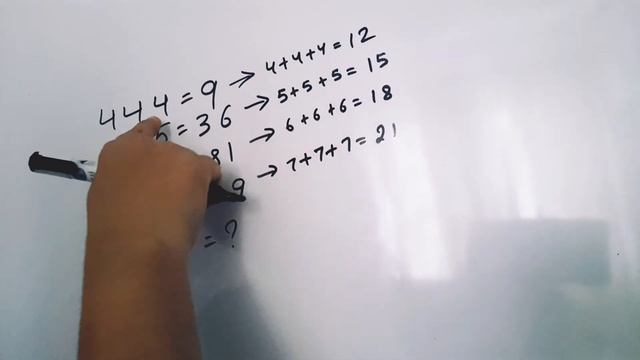 444 = 9 → 4+4+4 = 12
5 = 36 → 5+5+5 = 15
81 → 6+6+6 = 18
9 → 7+7+7 = 21
= ?